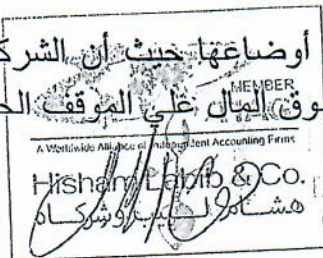 أوضاعها حيث أن الشرك
MEMBER
وق المال علي الموقف
A Worldwide Alliance of Independent Accounting Firms
Hisham Labib & Co.
هشام لبيب وشركاه